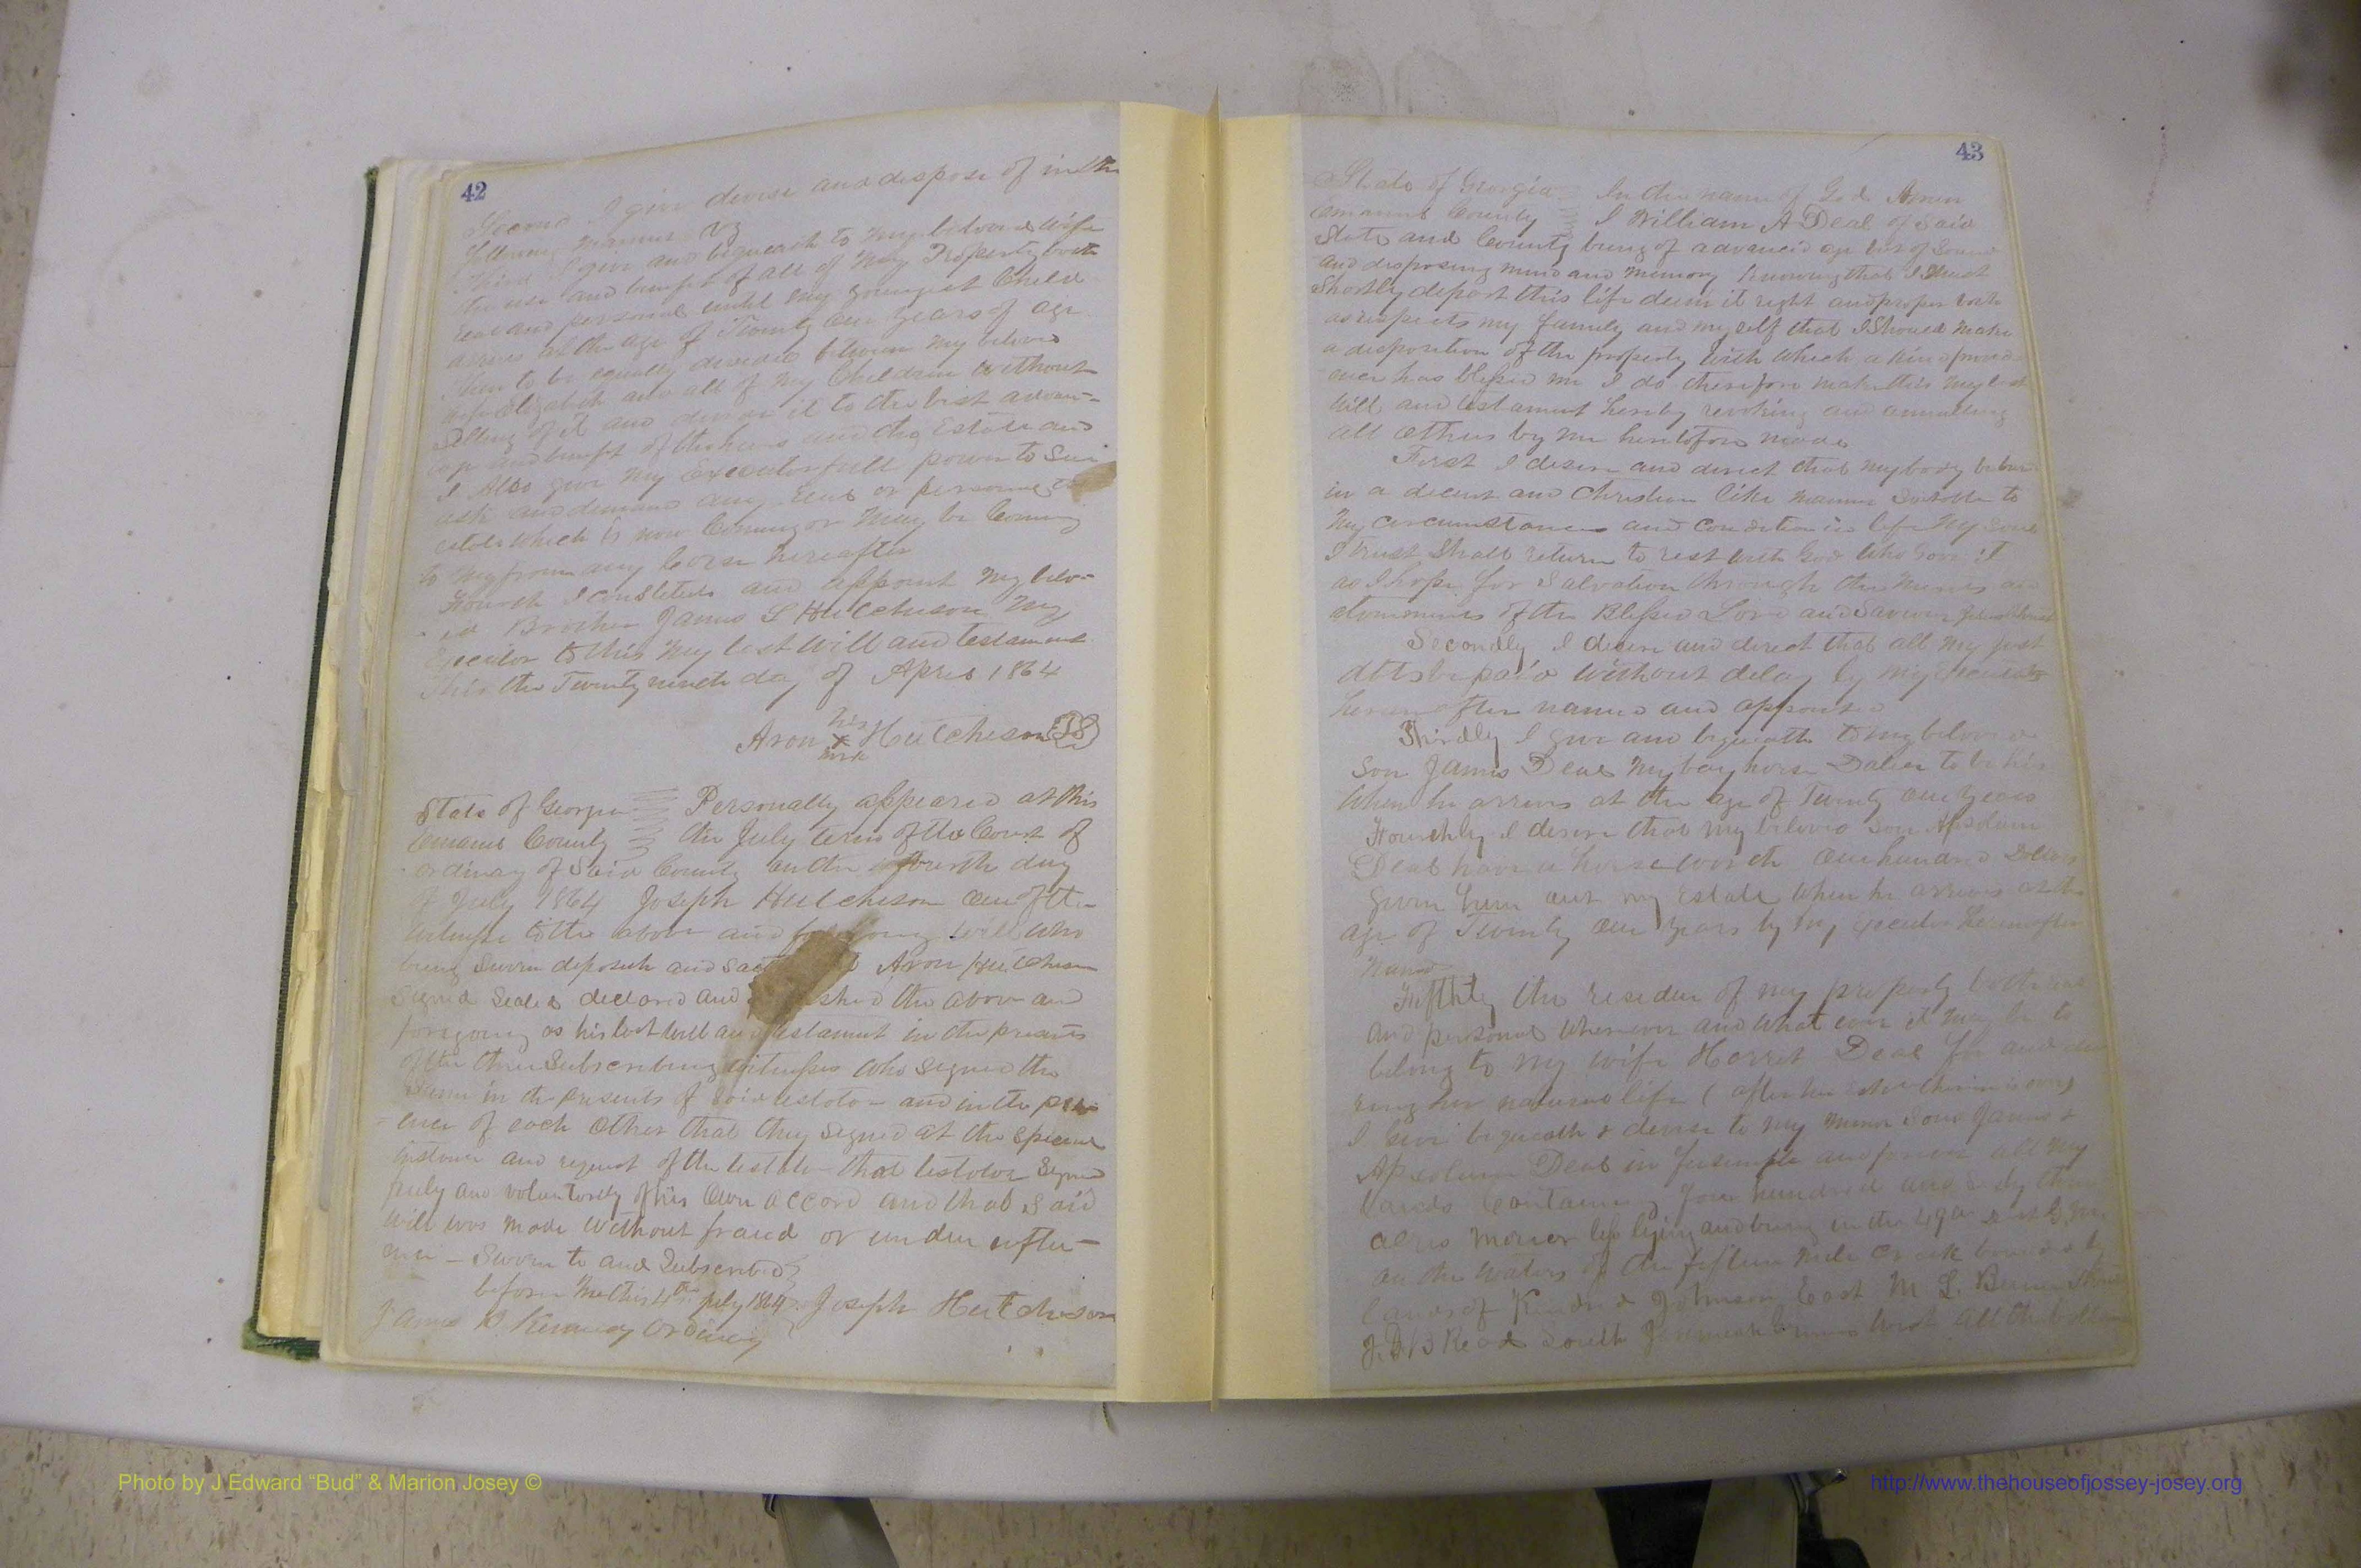 42
Second I give devise and dispose of in the
following manner Viz
Third I give and bequeath to my beloved wife
the use and benefit of all of my Property both
real and personal until my youngest Child
arrives at the age of Twenty One years of age
then to be equally devided between my beloved
wife Elizabeth and all of my Children without
Selling of it and devide it to the best advan-
tage and benefit of the heirs and the Estate and
I Also give my Executor full power to Sue
ask and demand any real or personal
estate which is now Coming or may be Coming
to my from any Corse hereafter
Fourth I constitute and appoint my belov-
ed Brother James S Hutcheson My
Executor to this my last Will and testament
this the Twenty nineth day of April 1864
his
Aron X Hutcheson LS
mrk
State of Georgia Personally appeared at this
Emanuel County the July term of the Court of
ordinary of Said County on the fourth day
of July 1864 Joseph Hutcheson One of the
witness to the above and foregoing will who
being Sworn deposeth and Aron Hutcheson
Signed Sealed declared and the above and
foregoing as his last will and testament in the presents
of the three Subscribing witnesses who Signed the
Same in the presents of Said testator and in the pres-
ence of each Other that they Signed at the Special
instance and request of the testator that testator Signed
freely and voluntarily of his Own accord and that Said
Will was made without fraud or undue influ-
ence - Sworn to and Subscribed
before me this 4th July 1864 Joseph Hutcheson
James Kennedy Ordinary
43
State of Georgia In the name of God Amen
Emanuel County I William A Deal of Said
State and County being of advanced age but of Sound
and disposing mind and memory knowing that I Must
Shortly depart this life deem it right and proper both
as respects my family and myself that I Should make
a disposition of the property with which a kind provid-
ence has blessed me I do therefore make this my last
Will and testament hereby revoking and annulling
all Others by me heretofore made
First I desire and direct that my body be buried
in a decent and Christian like manner Suitable to
my circumstances and condition in life My Soul
I trust Shall return to rest with God who gave it
as I hope for Salvation through the Merits and
atonements of the Blessed Lord and Saviour Jesus Christ
Secondly I desire and direct that all my just
debts be paid without delay by my Executors
herein after named and appointed
Thirdly I give and bequeath to my beloved
Son James Deal my bay horse to be his
When he arrives at the age of Twenty One years
Fourthly I desire that my beloved Son
Deal have a horse worth One hundred Dollars
given him out my Estate when he arrives at the
age of Twenty One years by my executor hereinafter
Named
Fifthly the residue of my property both real
and personal wherever and what ever it may be to
belong to my wife Harriet Deal for and du
ring her natural life (after her
I give bequeath & devise to my minor Sons James &
Deal in fee simple and forever all my
lands Containing four hundred and
acres more or less lying and being in the 49th dist
on the waters of the fifteen mile creek bounded by
lands of Kindred Johnson East M L
South Jeremiah west all the
Photo by J Edward “Bud” & Marion Josey ©
http://www.thehouseofjossey-josey.org